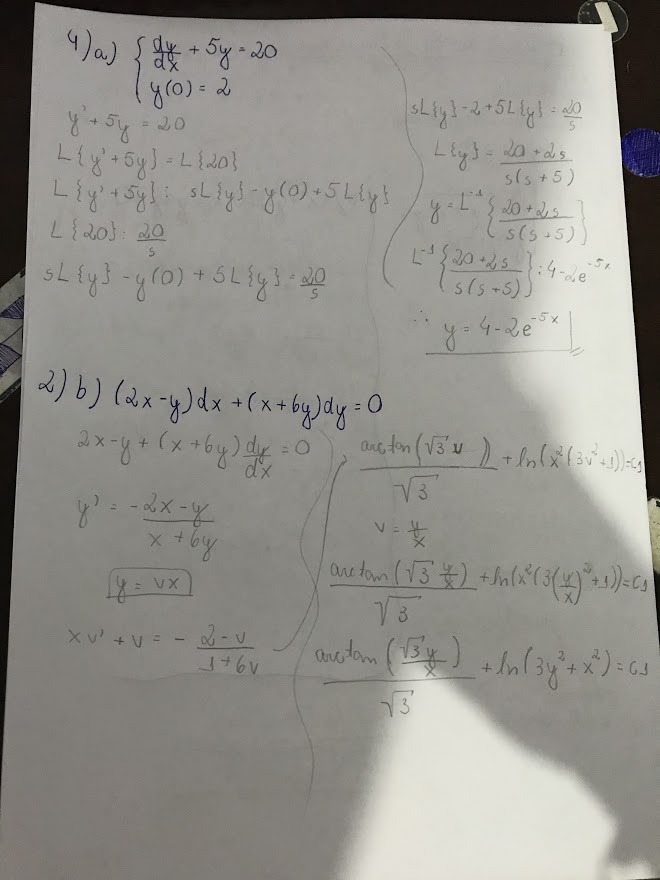 4) a) { dy/dx + 5y = 20
y(0) = 2
y' + 5y = 20
L{y' + 5y} = L{20}
L{y' + 5y}: sL{y} - y(0) + 5L{y}
L{20}: 20/s
sL{y} - y(0) + 5L{y} = 20/s
sL{y} - 2 + 5L{y} = 20/s
L{y} = 20 + 2s / s(s + 5)
y = L⁻¹ { 20 + 2s / s(s + 5) }
L⁻¹ { 20 + 2s / s(s + 5) } : 4 - 2e^-5x
∴ y = 4 - 2e^-5x
2) b) (2x - y)dx + (x + 6y)dy = 0
2x - y + (x + 6y) dy/dx = 0
y' = - 2x - y / x + 6y
y = vx
xv' + v = - 2 - v / 1 + 6v
arctan(√3 v) / √3 + ln(x²(3v² + 1)) = c1
v = y/x
arctan(√3 y/x) / √3 + ln(x²(3(y/x)² + 1)) = c1
arctan(√3y / x) / √3 + ln(3y² + x²) = c1